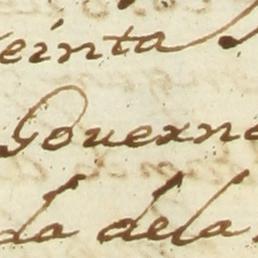 einta
Gouerne
da dela